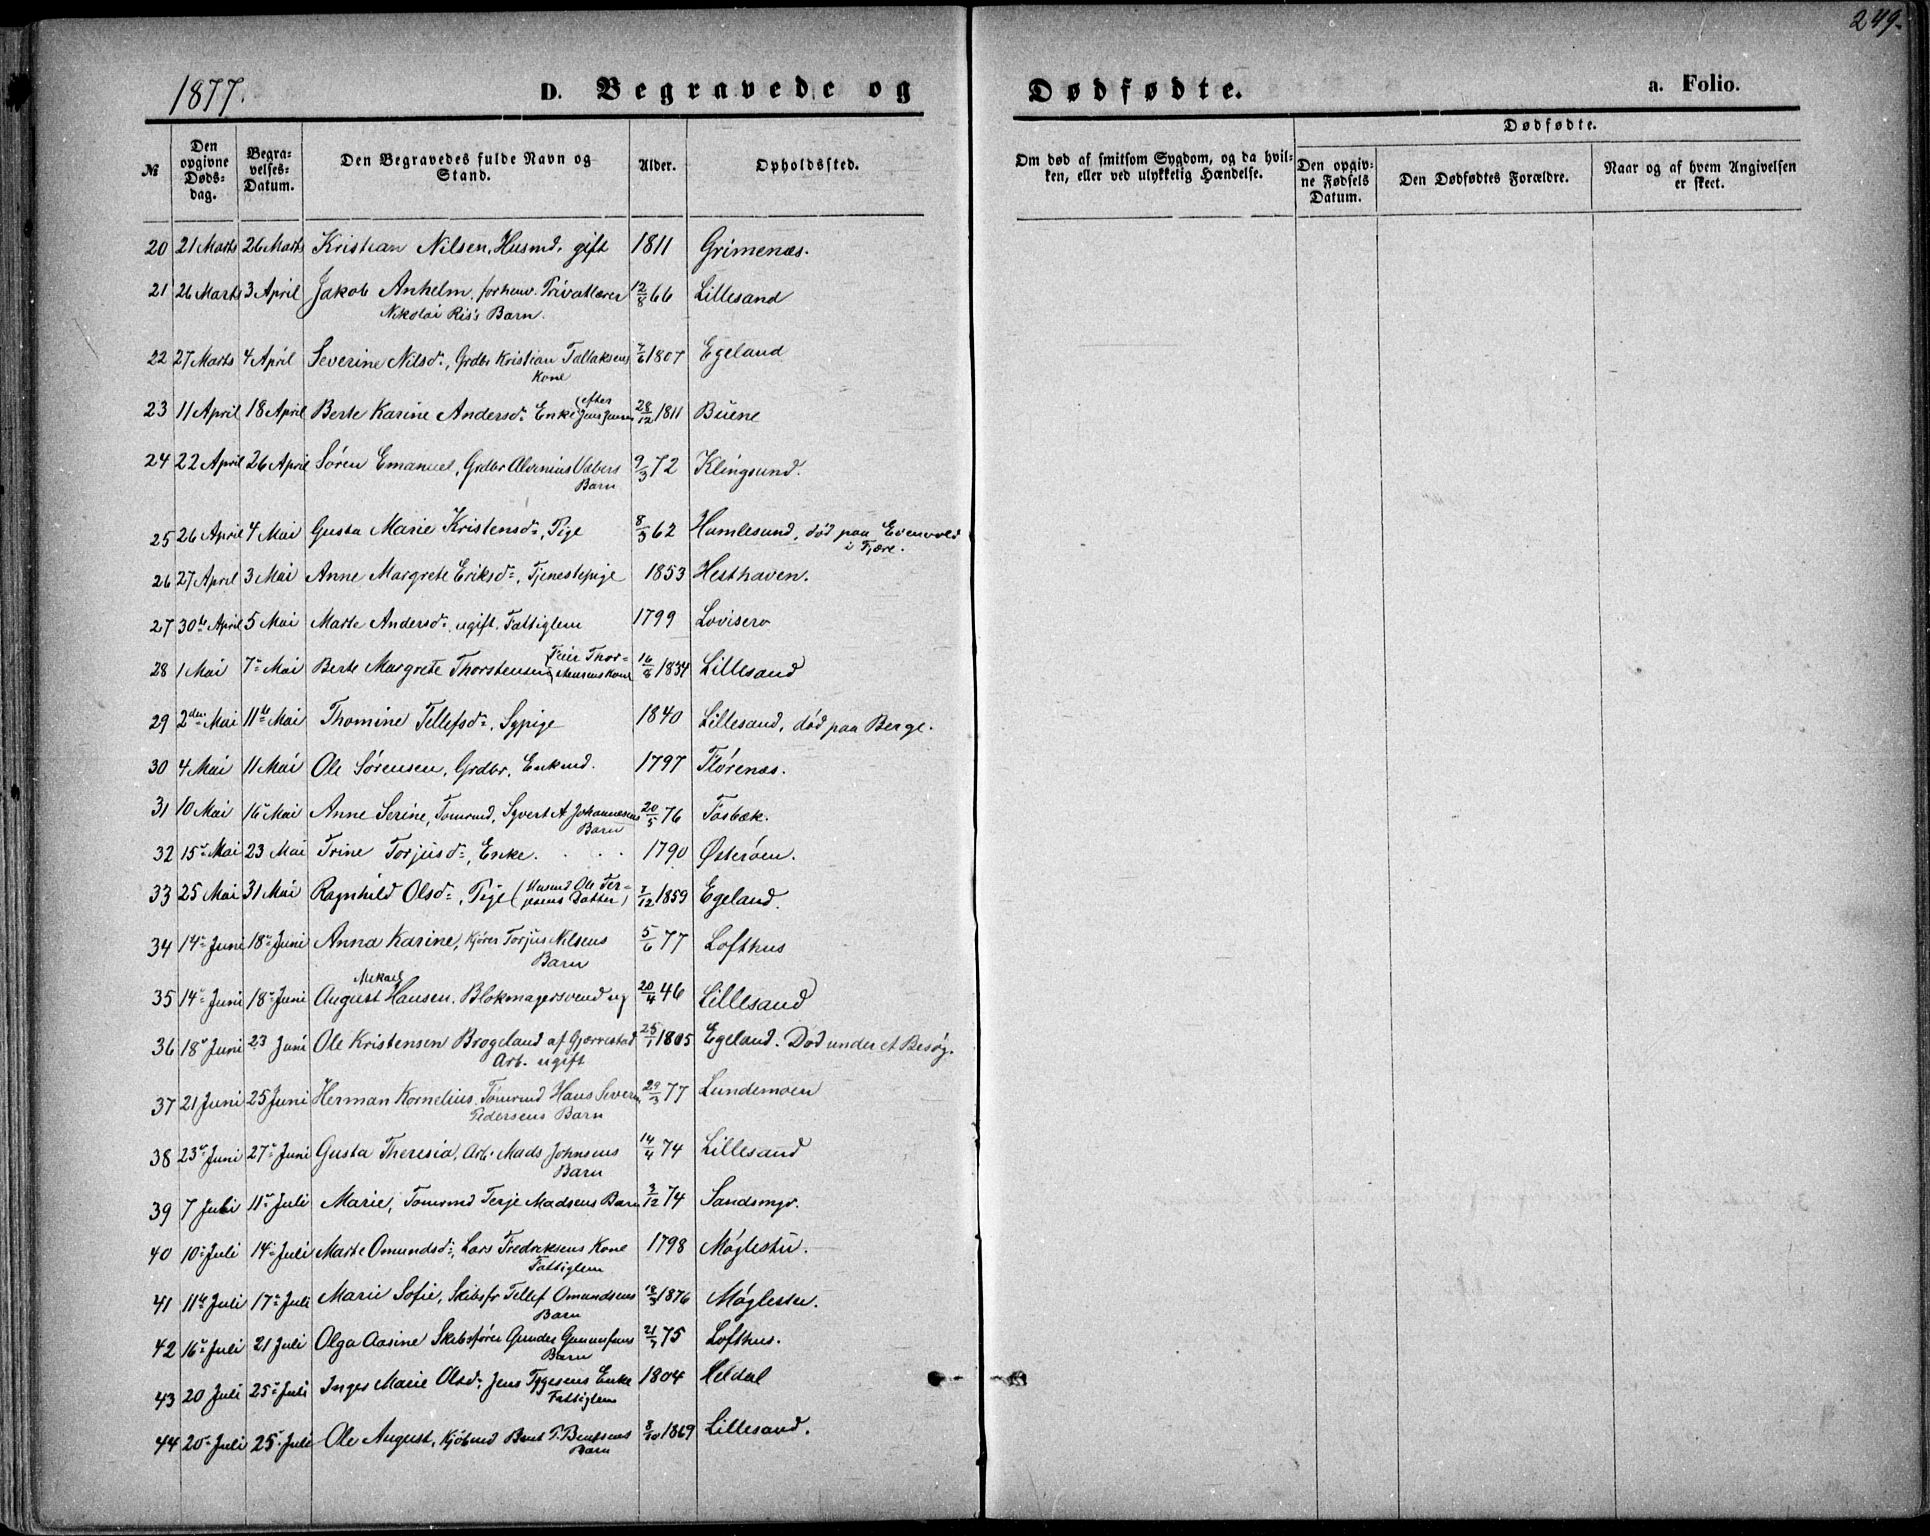 249.
1877.
D. Begravede og Dødfødte. a. Folio.
№ Den opgivne Døds-dag. Begra-velses-Datum. Den Begravedes fulde Navn og Stand. Alder. Opholdssted. Om død af smitsom Sygdom, og da hvil-ken, eller ved ulykkelig Hændelse. Dødfødte. Den opgiv-ne Fødsels Datum. Den Dødfødtes Forældre. Naar og af hvem Angivelsen er skeet.
20 21 Marts 26 Marts Kristian Nilsen, Husmd. gift 1811 Grimenæs.
21 26 Marts 3 April Jakob Anhelm, forhenv. Privatlærer 12/8 66 Lillesand
Nikolai Ris's Barn.
22 27 Marts 4 April Severine Nilsd:, Grdbr Kristian Tallaksens 7/6 1807 Egeland
Kone
23 11 April 18 April Berte Karine Andersd: Enke efter Jens Jensen 28/12 1811 Buene
24 22 April 26 April Søren Emanuel, Grdbr Alvinius Vabers 9/3 72 Klingsund.
Barn
25 26 April 4 Mai Gusta Marie Kristensd:, Pige 8/3 62 Humlesund, død paa Evenvold
i Fjære.
26 27 April 3 Mai Anne Margrete Eriksd:, Tjenestepige 1853 Hesthaven.
27 30te April 5 Mai Marte Andersd: ugift. Fattiglem 1799 Lovisero
28 1 Mai 7de Mai Berte Margrete Thorstensen (Peir Thor-stensens Kone 16/8 1834 Lillesand
29 2den Mai 11te Mai Thomine Tellefsd:, Sypige 1840 Lillesand, død paa Berge.
30 4 Mai 11 Mai Ole Sørensen, Grdbr, Enkmd. 1797 Florenæs.
31 10 Mai 16de Mai Anne Serine, Tomrmd, Syvert A Johannesens 20/5 76 Fosbæk.
Barn
32 15de Mai 23 Mai Trine Torjusd:, Enke. 1790 Østerøen.
33 25 Mai 31 Mai Ragnhild Olsd:, Pige (Husmd Ole Ter-jesens Datter) 7/12 1859 Egeland.
34 14de Juni 18de Juni Anna Karine, Kjører Torjus Nilsens 5/6 77 Lofthus
Barn
Mekael
35 14de Juni 18de Juni August Hansen. Blokmagersvend ug 20/4 46 Lillesand
36 18de Juni 23 Juni Ole Kristensen Brogeland af Gjerrestad 25/1 1805 Egeland. Død under et Besøg.
Arb. ugift
37 21 Juni 25 Juni Herman Kornelius. Tømrmd Hans Severin 29/3 77 Lundemoen
Pedersens Barn
38 23de Juni 27de Juni Gusta Theresia, Arb. Mads Johnsens 14/4 74 Lillesand
Barn
39 7 Juli 11te Juli Marie, Tomrmd Terje Madsens Barn 3/12 74 Sandsmyr.
40 10de Juli 14de Juli Marte Omundsd:, Lars Fredriksens Kone 1798 Møglestu.
Fattiglem
41 11te Juli 17de Juli Marie Sofie, Skibsfr Tellef Omundsens 1876 Møglestu.
Barn
42 16de Juli 21 Juli Olga Aasine Skibsfører Gunder Gunnufsens 21/7 75 Lofthus.
Barn
43 20 Juli 25de Juli Inger Marie Olsd: Jens Tygesens Enke 1804 Heldal
Fattiglem
44 20de Juli 25de Juli Ole August, Kjøbmd Bent P. Bentsens 8/10 1869 Lillesand.
Barn